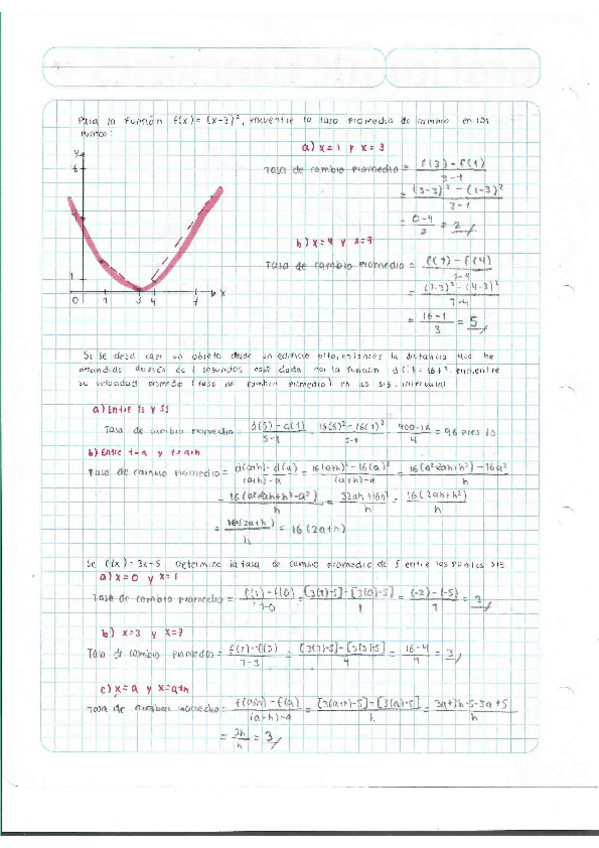 Para la función f(x) = (x-3)², encuentre la tasa promedio de cambio en los
puntos:
a) x=1 y x=3
Tasa de cambio promedio = f(3) - f(1) / 3-1
= (3-3)² - (1-3)² / 3-1
= 0-4 / 2 = 2
b) x=4 y x=7
Tasa de cambio promedio = f(7) - f(4) / 7-4
= (7-3)² - (4-3)² / 7-4
= 16-1 / 3 = 5
y
1
0 1 3 4 7 x
Si se deja caer un objeto desde un edificio alto, entonces la distancia que ha
descendido después de t segundos está dada por la función d(t) = 16t². encuentre
su velocidad promedio (tasa de cambio promedio) en los sig. intervalos
a) Entre 1s y 5s
Tasa de cambio promedio = d(5) - d(1) / 5-1 = 16(5)² - 16(1)² / 5-1 = 400-16 / 4 = 96 pies
b) Entre t=a y t=a+h
Tasa de cambio promedio = d(a+h) - d(a) / (a+h)-a = 16(a+h)² - 16(a)² / (a+h)-a = 16(a²+2ah+h²) - 16a² / h
= 16(a²+2ah+h²-a²) / h = 32ah+16h² / h = 16(2ah+h²) / h
= 16h(2a+h) / h = 16(2a+h)
Se f(x) = 3x-5. Determine la tasa de cambio promedio de entre los puntos
a) x=0 y x=1
Tasa de cambio promedio = f(1) - f(0) / 1-0 = [3(1)-5] - [3(0)-5] / 1 = (-2) - (-5) / 1 = 3
b) x=3 y x=7
Tasa de cambio promedio = f(7) - f(3) / 7-3 = [3(7)-5] - [3(3)-5] / 4 = 16-4 / 4 = 3
c) x=a y x=a+h
Tasa de cambio promedio = f(a+h) - f(a) / (a+h)-a = [3(a+h)-5] - [3(a)-5] / h = 3a+3h-5-3a+5 / h
= 3h / h = 3